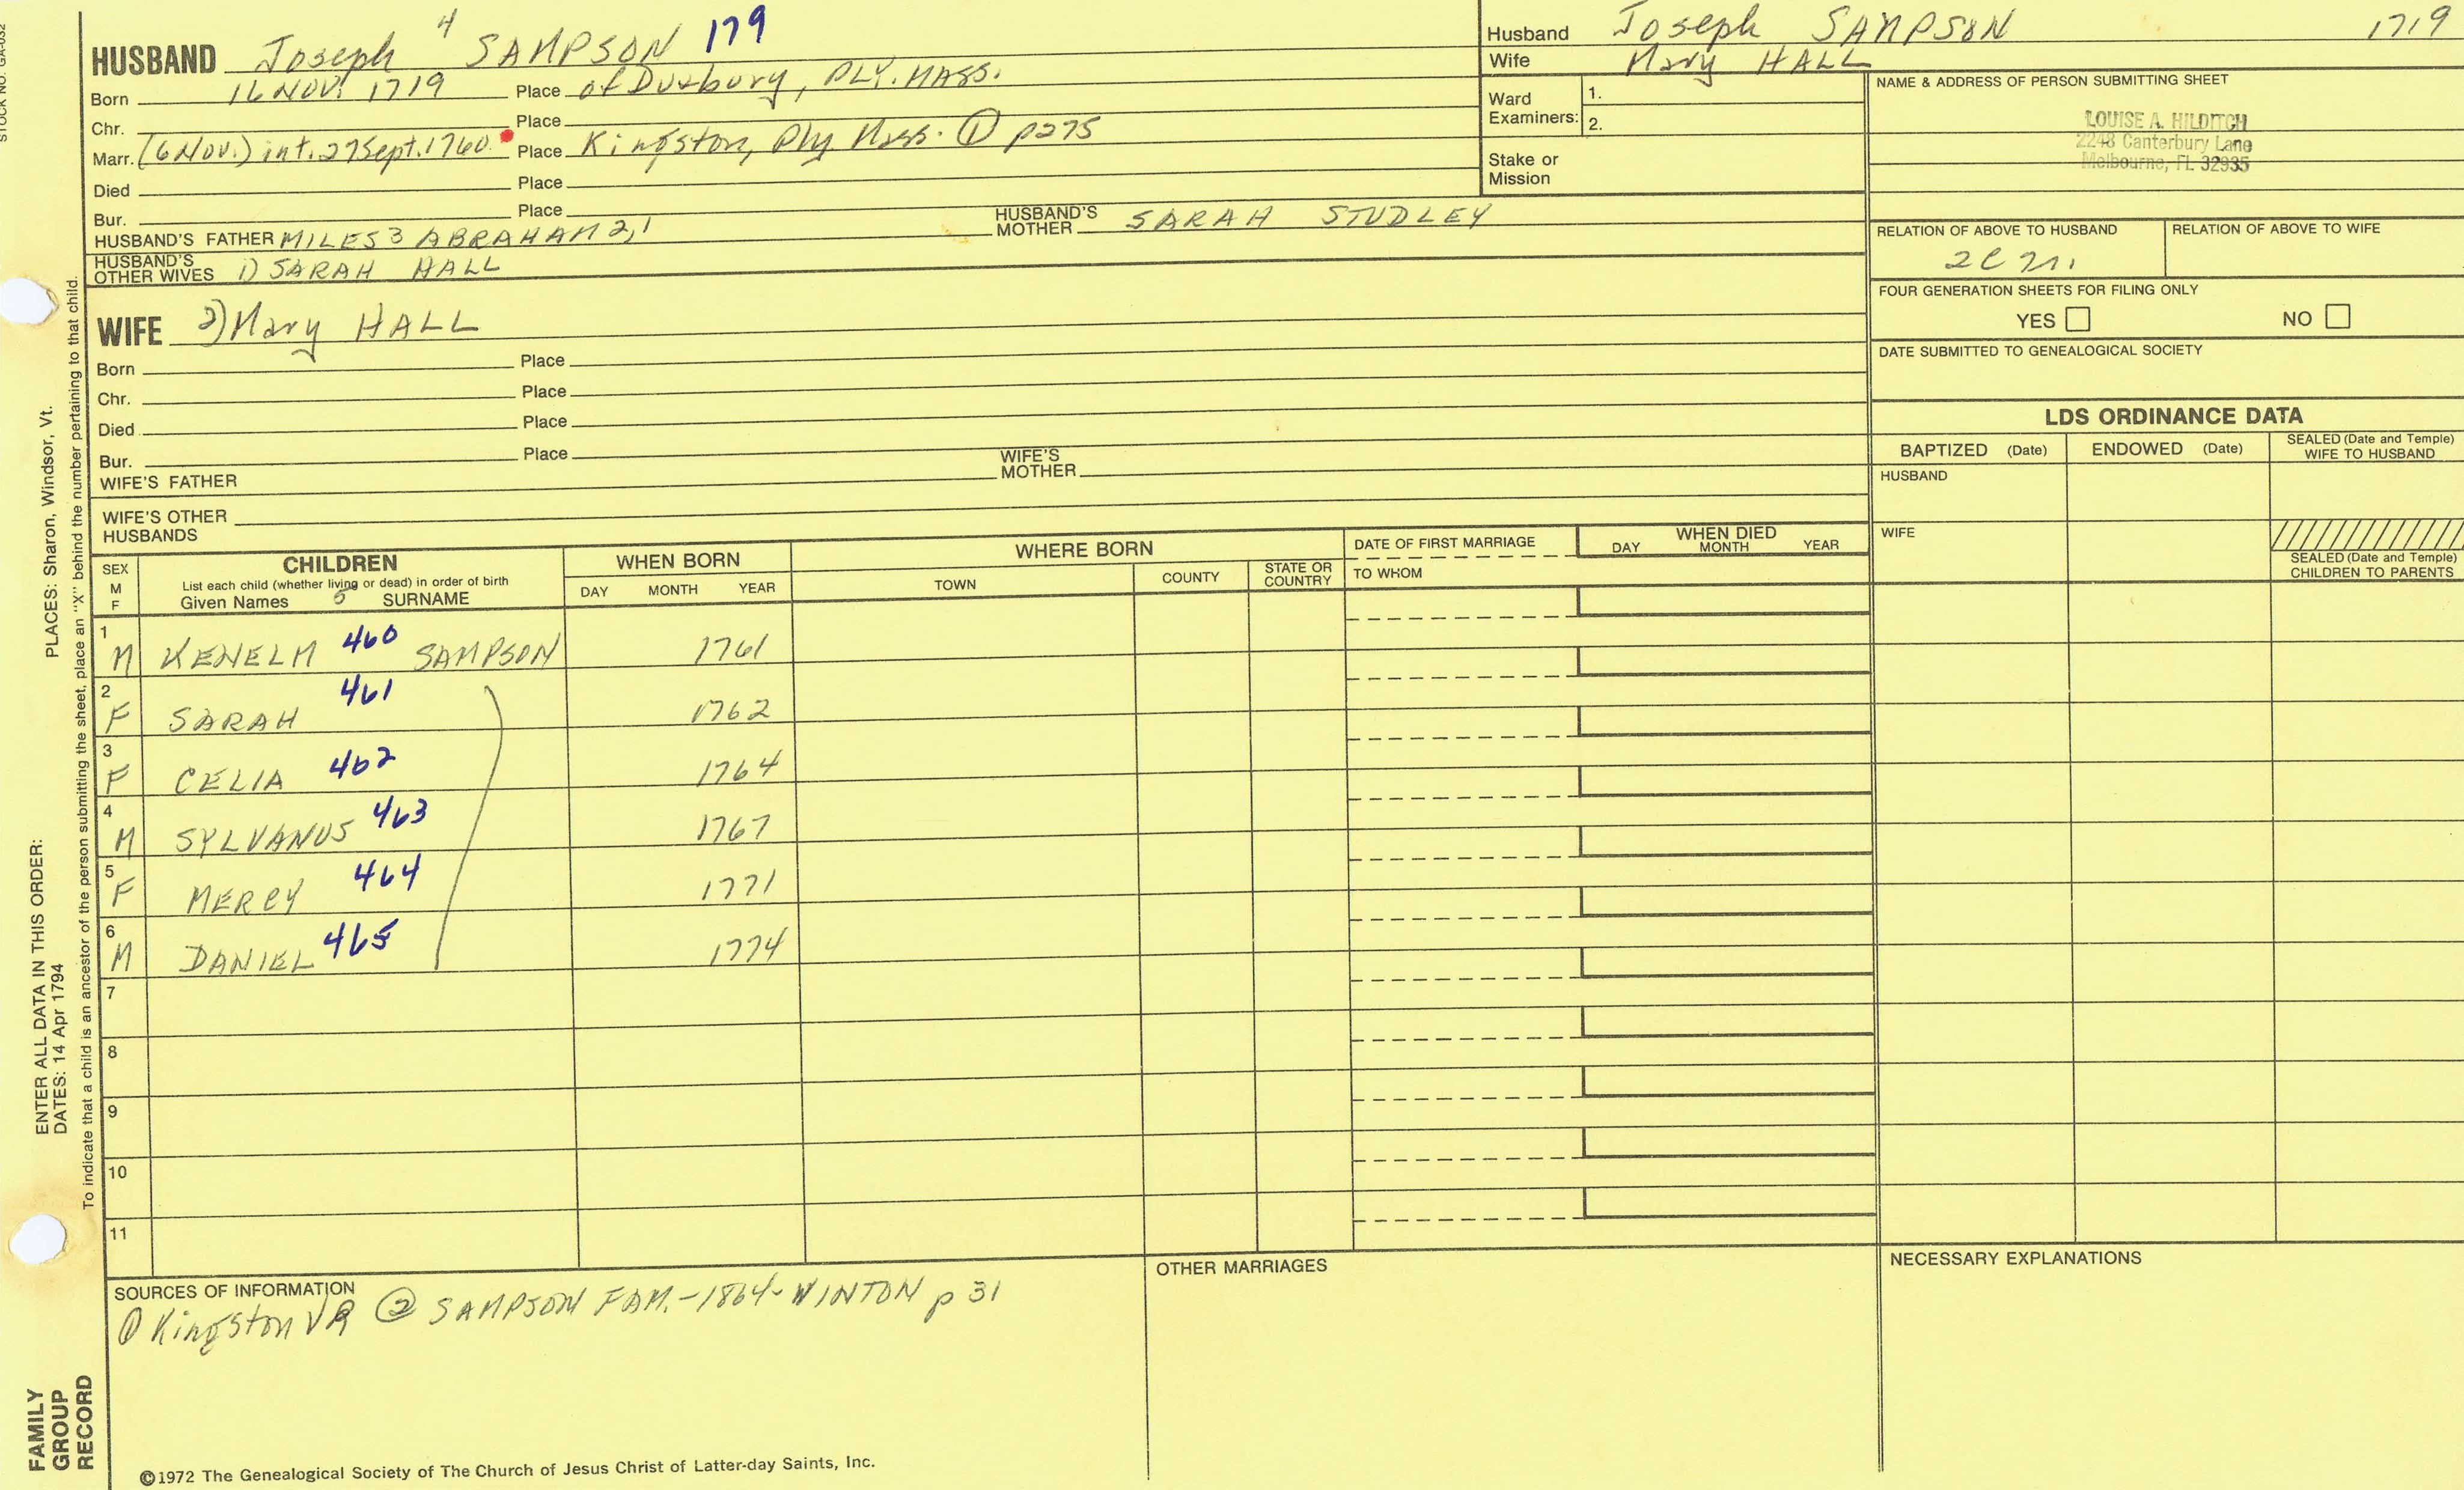 STOCK NO. GA-032
HUSBAND Joseph 4 SAMPSON 179
Born 16 NOV. 1719 Place of Duxbury, PLY. MASS.
Chr. Place
Marr. (6 Nov.) int. 27 Sept. 1760 Place Kingston, Ply Mass. ① p275
Died Place
Bur. Place
HUSBAND'S FATHER MILES 3 ABRAHAM 2,1 HUSBAND'S MOTHER SARAH STUDLEY
HUSBAND'S OTHER WIVES 1) SARAH HALL
WIFE 2) Mary HALL
Born Place
Chr. Place
Died Place
Bur. Place
WIFE'S FATHER WIFE'S MOTHER
WIFE'S OTHER HUSBANDS
Husband Joseph SAMPSON 1719
Wife Mary HALL
Ward Examiners: 1.
2.
Stake or Mission
NAME & ADDRESS OF PERSON SUBMITTING SHEET
LOUISE A. HILDITCH
2248 Canterbury Lane
Melbourne, FL 32935
RELATION OF ABOVE TO HUSBAND RELATION OF ABOVE TO WIFE
FOUR GENERATION SHEETS FOR FILING ONLY
YES NO
DATE SUBMITTED TO GENEALOGICAL SOCIETY
LDS ORDINANCE DATA
BAPTIZED (Date) ENDOWED (Date) SEALED (Date and Temple) WIFE TO HUSBAND
HUSBAND
WIFE
SEALED (Date and Temple) CHILDREN TO PARENTS
SEX M F CHILDREN List each child (whether living or dead) in order of birth Given Names 5 SURNAME
WHEN BORN DAY MONTH YEAR
WHERE BORN TOWN COUNTY STATE OR COUNTRY
DATE OF FIRST MARRIAGE TO WHOM
WHEN DIED DAY MONTH YEAR
1 M KENELM 460 SAMPSON 1761
2 F SARAH 461 1762
3 F CELIA 462 1764
4 M SYLVANUS 463 1767
5 F MERCY 464 1771
6 M DANIEL 465 1774
7
8
9
10
11
SOURCES OF INFORMATION
① Kingston VR ② SAMPSON FAM. - 1864 - WINTON p 31
OTHER MARRIAGES
NECESSARY EXPLANATIONS
©1972 The Genealogical Society of The Church of Jesus Christ of Latter-day Saints, Inc.
ENTER ALL DATA IN THIS ORDER:
DATES: 14 Apr 1794
PLACES: Sharon, Windsor, Vt.
To indicate that a child is an ancestor of the person submitting the sheet, place an "X" behind the number pertaining to that child.
FAMILY
GROUP
RECORD